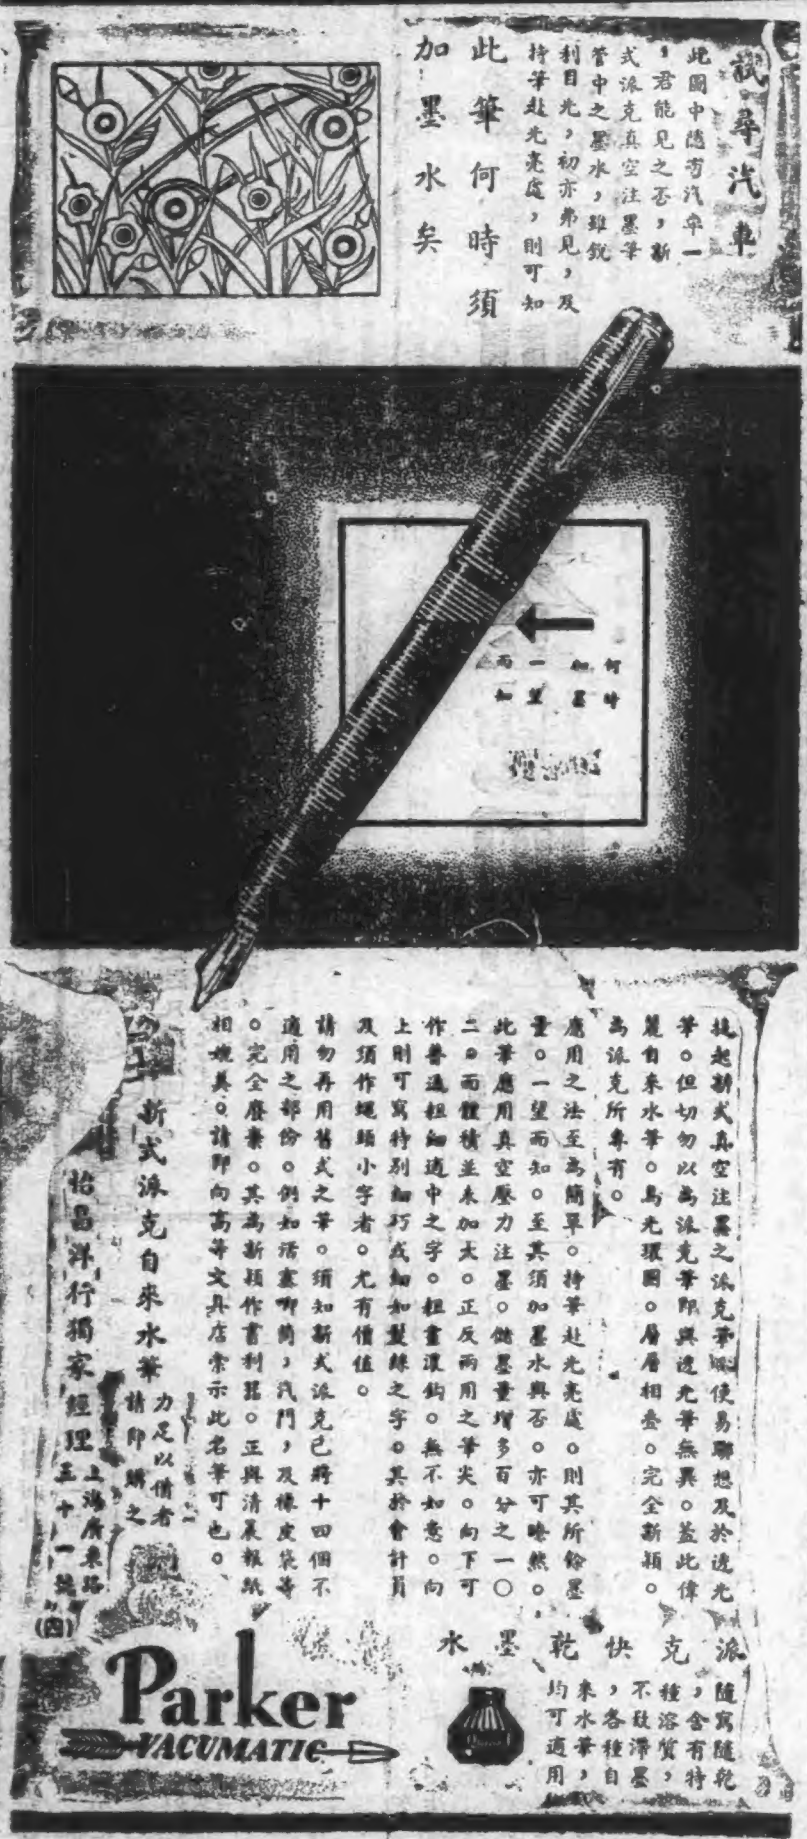 試尋汽車
此圖中隱有汽車一
，君能見之否，新
式派克真空注墨筆
管中之墨水，雖銳
利目光，初亦弗見，及
持筆赴光亮處，則可知
此筆何時須
加墨水矣
何時
加墨
一望
而知
提起新式真空注墨之派克筆使易聯想及於透光
筆。但切勿以為派克筆即與透光筆無異。蓋此偉
麗自來水筆。烏光環圈。層層相疊。完全新穎。
為派克所專有。
應用之法至為簡單。持筆赴光亮處。則其所餘墨
量。一望而知。至其須加墨水與否。亦可瞭然。
此筆應用真空壓力注墨。儲墨量增多百分之一〇
二。而體積並未加大。正反兩用之筆尖。向下可
作普通粗細適中之字。粗畫濃鈎。無不如意。向
上則可寫特別細巧或細如髮絲之字。其於會計員
及須作蠅頭小字者。尤有價值。
請勿再用舊式之筆。須知新式派克已將十四個不
適用之部份。例如活塞唧筒，汽門，及橡皮袋等
。完全廢棄。其為新穎作書利器。正與清晨報紙
相媲美。請即向高等文具店索示此名筆可也。
新式派克自來水筆
力足以備者
請即購之
怡昌洋行獨家經理
上海廣東路
五十一號
(四)
派克快乾墨水
隨寫隨乾
，含有特
種溶質，
不致滯墨
，各種自
來水筆，
均可適用
Quink
Parker
VACUMATIC